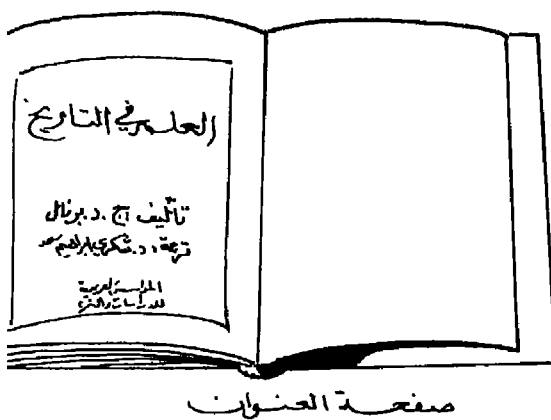 العلم في التاريخ
تأليف ج.د. برنال
ترجمة د. شكري ابراهيم سعد
المؤسسة العربية
للدراسات والنشر
صفحة العنوان